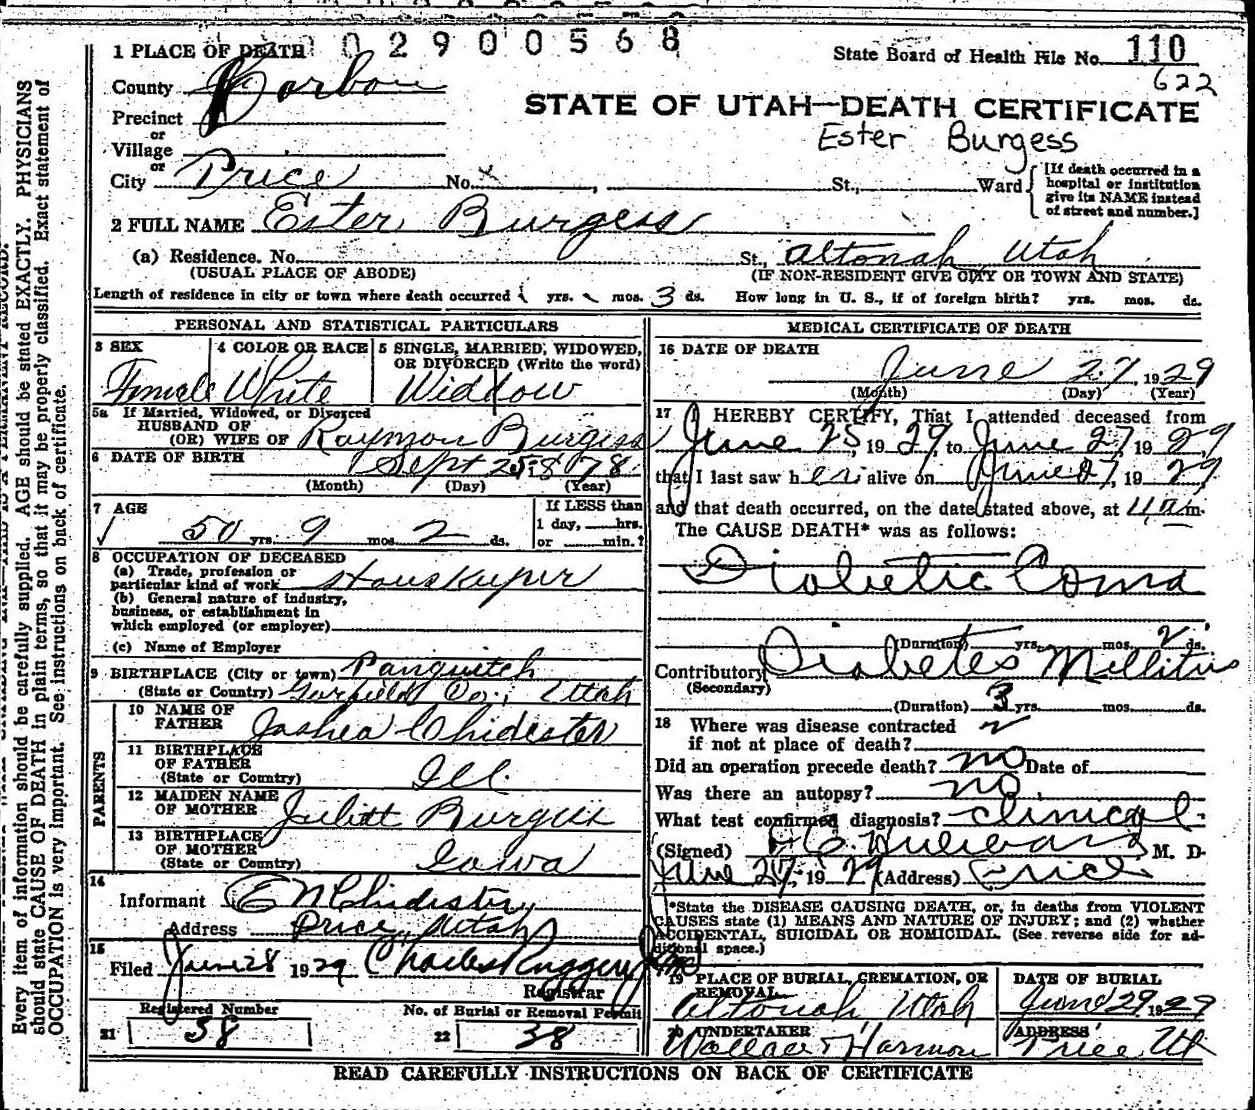 0 0 2 9 0 0 5 6 8
1 PLACE OF DEATH
State Board of Health File No. 110
622
County Carbon
STATE OF UTAH—DEATH CERTIFICATE
Precinct
or
Village
Ester Burgess
or
City Price No. , St., Ward
[If death occurred in a hospital or institution give its NAME instead of street and number.]
2 FULL NAME Ester Burgess
(a) Residence. No. St., Altonah Utah
(USUAL PLACE OF ABODE) (IF NON-RESIDENT GIVE CITY OR TOWN AND STATE)
Length of residence in city or town where death occurred yrs. mos. 3 ds. How long in U. S., if of foreign birth? yrs. mos. ds.
PERSONAL AND STATISTICAL PARTICULARS
3 SEX 4 COLOR OR RACE 5 SINGLE, MARRIED, WIDOWED,
OR DIVORCED (Write the word)
Female White Widdow
5a If Married, Widowed, or Divorced
HUSBAND OF
(OR) WIFE OF Raymon Burgess
6 DATE OF BIRTH Sept 25 1878
(Month) (Day) (Year)
7 AGE If LESS than
1 day, hrs.
50 yrs. 9 mos. 2 ds. or min.?
8 OCCUPATION OF DECEASED
(a) Trade, profession or
particular kind of work
(b) General nature of industry,
business, or establishment in
which employed (or employer)
(c) Name of Employer
9 BIRTHPLACE (City or town) Panguitch
(State or Country) Garfield Co., Utah
PARENTS
10 NAME OF
FATHER Joshea Chidester
11 BIRTHPLACE
OF FATHER
(State or Country) Ill.
12 MAIDEN NAME
OF MOTHER Juliatt Burgess
13 BIRTHPLACE
OF MOTHER
(State or Country) Iowa
14
Informant E M Chidester
Address Price, Utah
15
Filed June 28 1929 Charles Ruggeri
Registrar
Registered Number No. of Burial or Removal Permit
21 58 22 38
MEDICAL CERTIFICATE OF DEATH
16 DATE OF DEATH
June 27, 1929
(Month) (Day) (Year)
17 I HEREBY CERTIFY, That I attended deceased from
June 25, 1929, to June 27, 1929
that I last saw her alive on June 27, 1929
and that death occurred, on the date stated above, at 4 am.
The CAUSE DEATH* was as follows:
Diabetic Coma
(Duration) yrs. mos. 2 ds.
Contributory Diabetes Mellitus
(Secondary)
(Duration) 3 yrs. mos. ds.
18 Where was disease contracted
if not at place of death?
Did an operation precede death? no Date of
Was there an autopsy? no
What test confirmed diagnosis? clinical
(Signed) M. D.
June 27, 1929 (Address) Price
*State the DISEASE CAUSING DEATH, or, in deaths from VIOLENT
CAUSES state (1) MEANS AND NATURE OF INJURY; and (2) whether
ACCIDENTAL, SUICIDAL OR HOMICIDAL. (See reverse side for ad-
ditional space.)
19 PLACE OF BURIAL, CREMATION, OR DATE OF BURIAL
REMOVAL
Altonah Utah June 29, 1929
20 UNDERTAKER ADDRESS
Wallace & Harmon Price Ut
READ CAREFULLY INSTRUCTIONS ON BACK OF CERTIFICATE
Every item of information should be carefully supplied. AGE should be stated EXACTLY. PHYSICIANS
should state CAUSE OF DEATH in plain terms, so that it may be properly classified. Exact statement of
OCCUPATION is very important. See instructions on back of certificate.